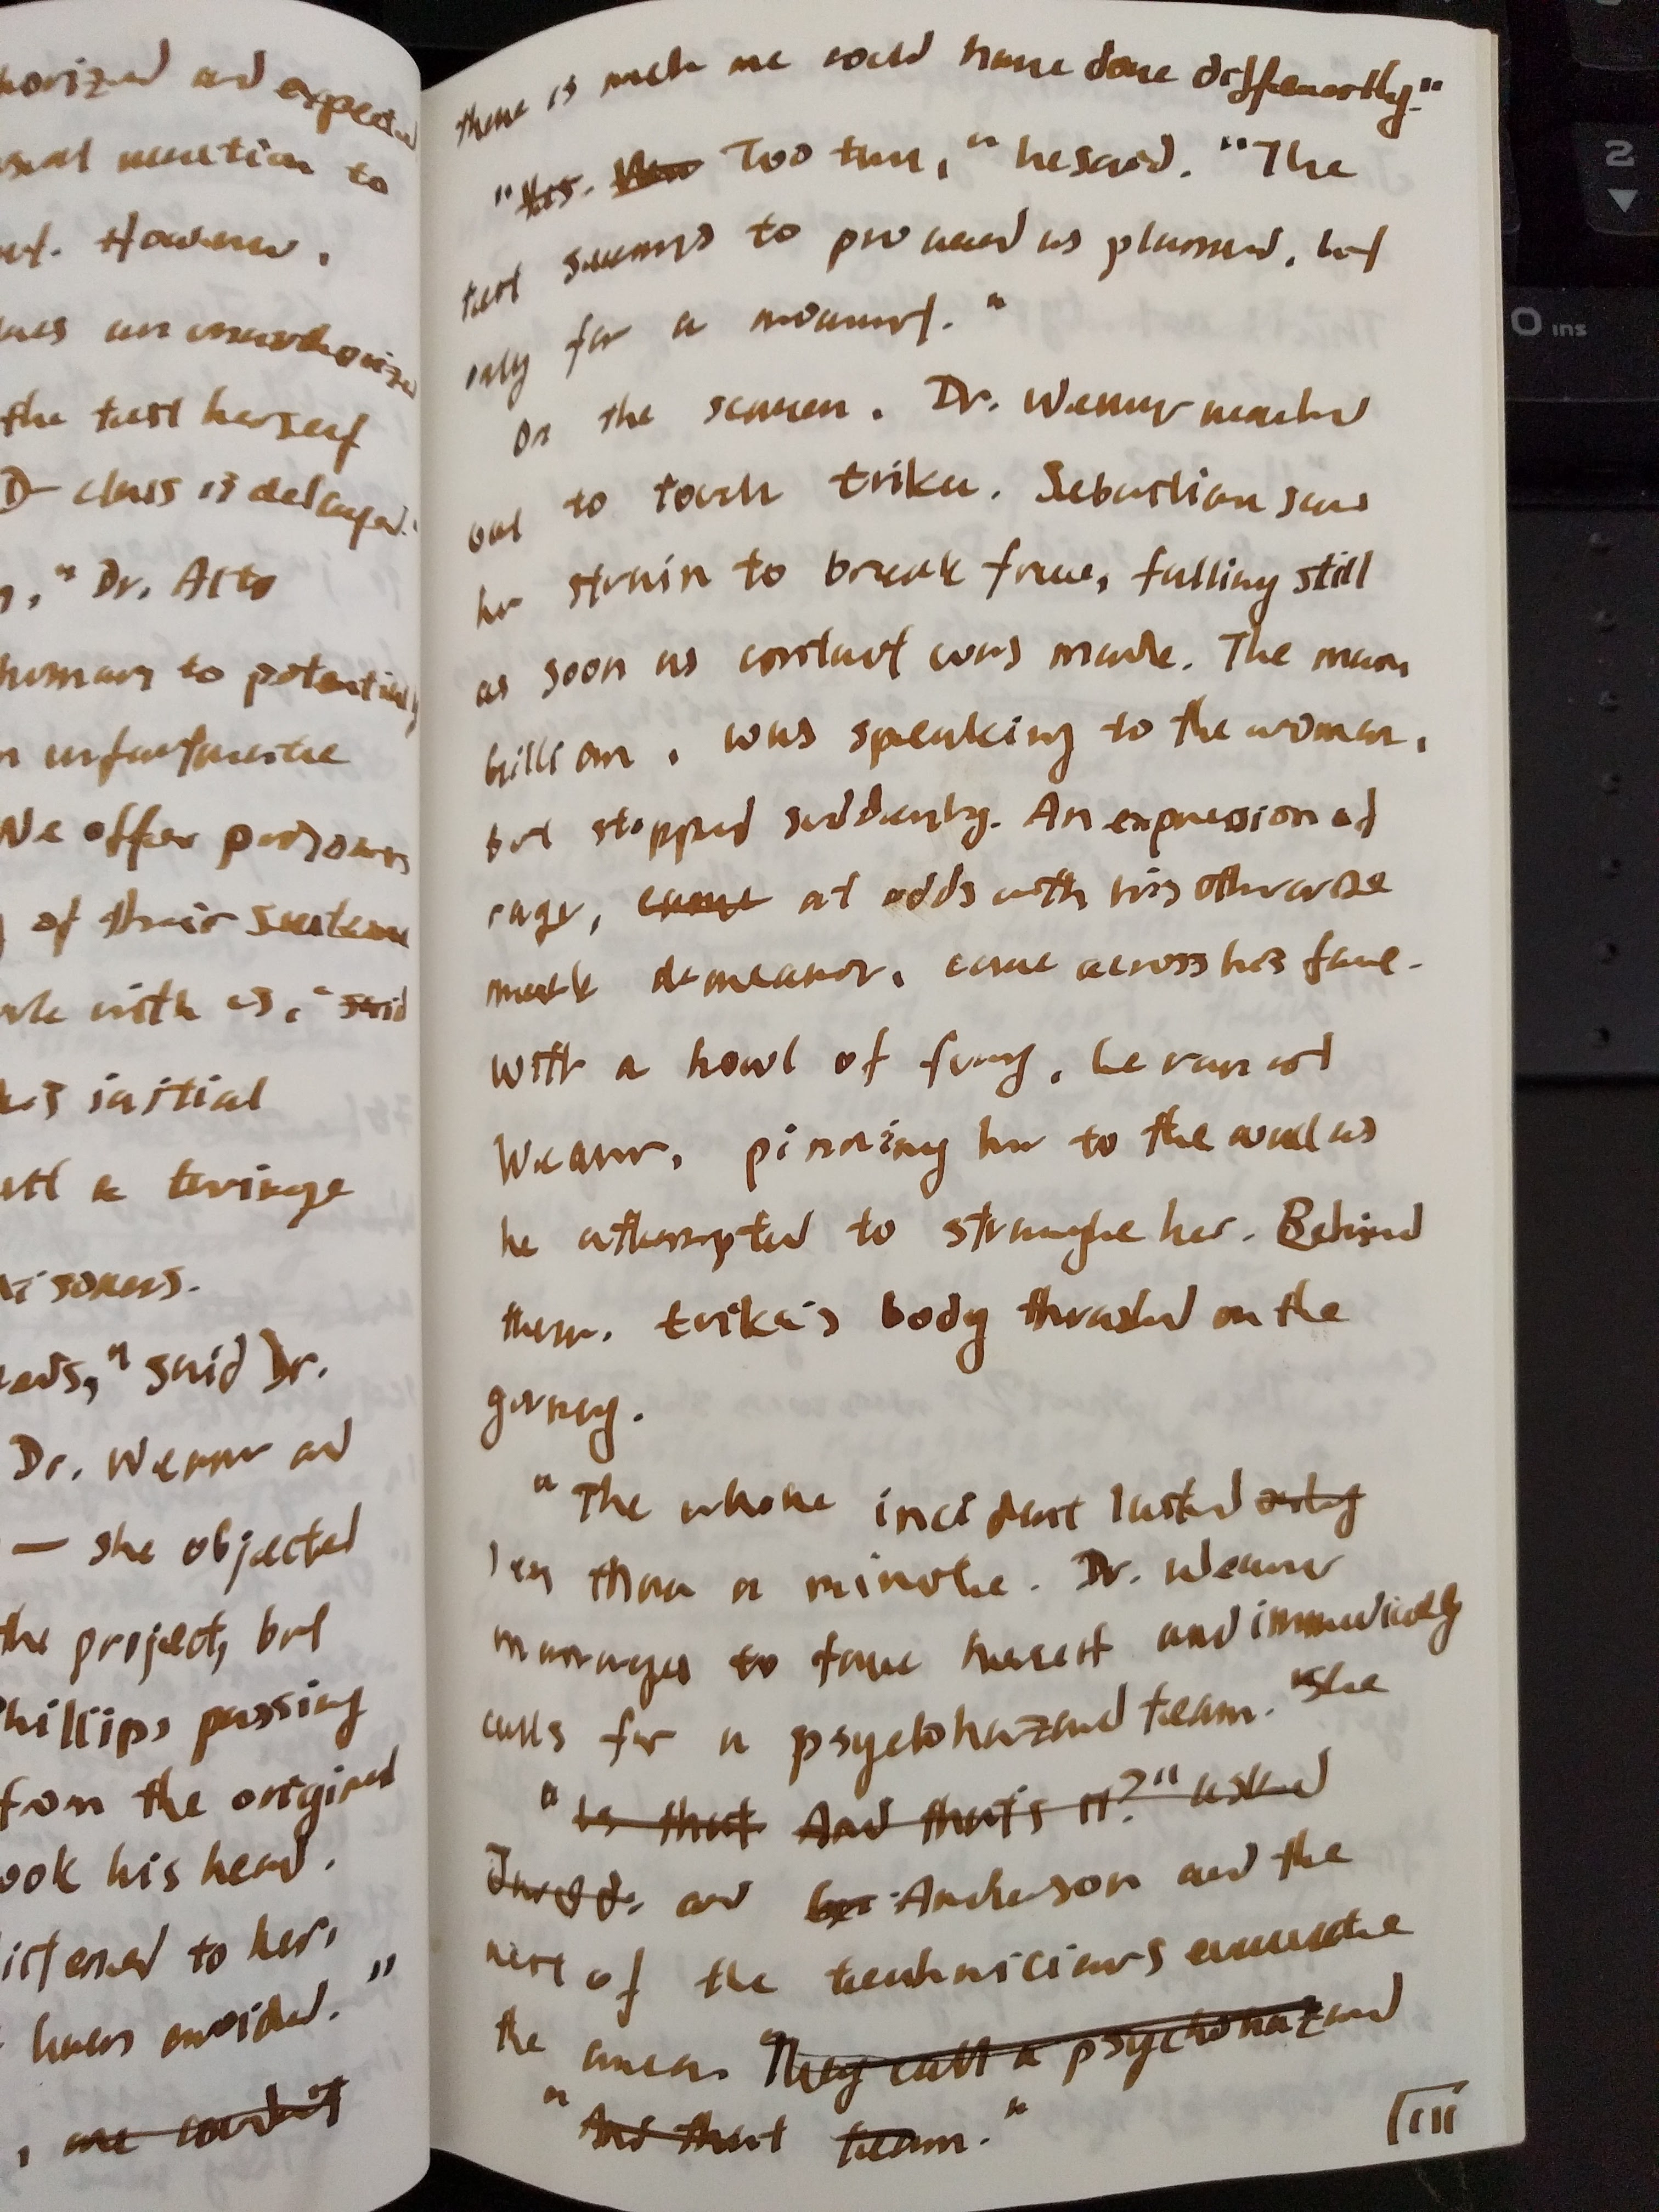 horized and expected
usual mention to
However,
was an unauthorized
the test herself
D-class is delayed."
," Dr. Alto
humans to potentially
unfortunate
We offer prisoners
of their sentence
with us," said
his initial
with a twinge
prisoners.
said Dr.
Dr. Weaver and
— she objected
the project, but
Phillips passing
from the original
ook his head.
listened to her,
been avoided."
, we could
there is much we could have done differently."
"Yes. Too true," he said. "The
test seems to proceed as planned, but
only for a moment."
On the screen, Dr. Weaver reached
out to touch Erika. Sebastian saw
her strain to break free, falling still
as soon as contact was made. The man
billion, was speaking to the woman,
but stopped suddenly. An expression of
rage, came at odds with his otherwise
meek demeanor, came across his face.
With a howl of fury, he ran at
Weaver, pinning her to the wall as
he attempted to strangle her. Behind
them, Erika's body thrashed on the
gurney.
"The whole incident lasted only
less than a minute. Dr. Weaver
manages to free herself and immediately
calls for a psychohazard team. "She
"Is that And that's it?" asked
Judge. and her Anderson and the
rest of the technicians evacuate
the area. They call a psychohazard
"And that team."
2
0 ins